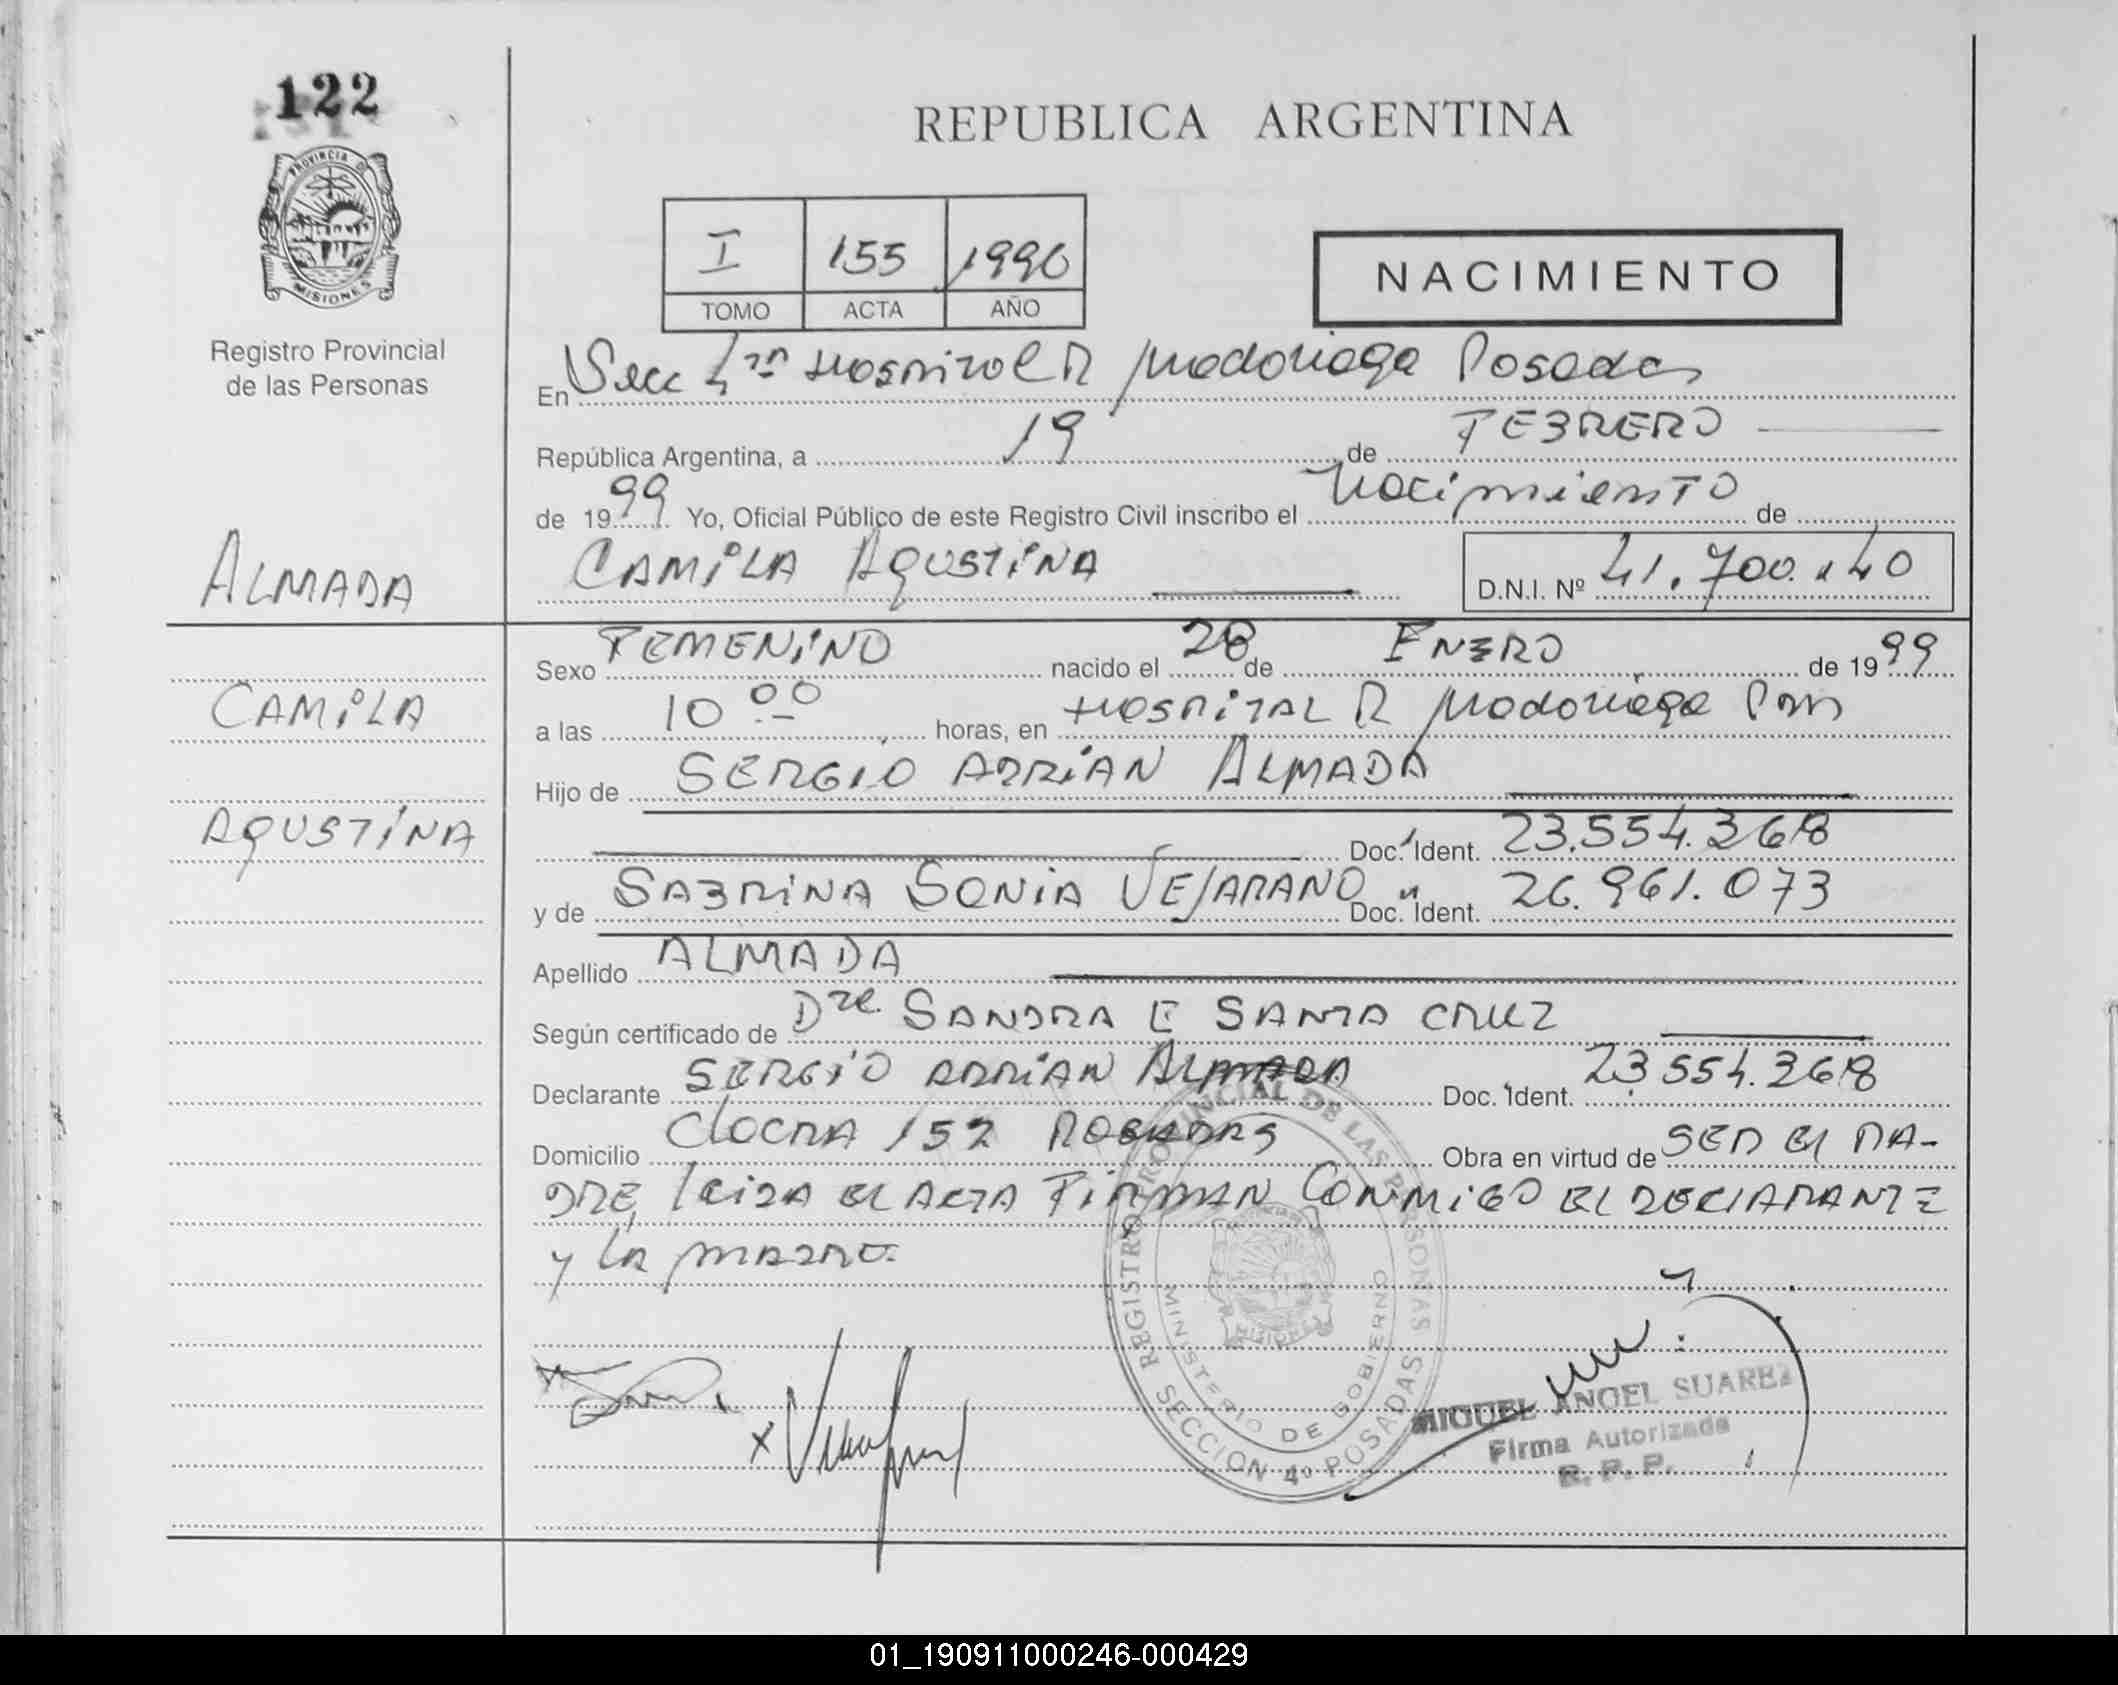 122
PROVINCIA DE
MISIONES
Registro Provincial
de las Personas
REPUBLICA ARGENTINA
I 155 1990
TOMO ACTA AÑO
NACIMIENTO
En Secc 4ta Hospital R Madariaga Posadas
República Argentina, a 19 de FEBRERO
de 1999 Yo, Oficial Público de este Registro Civil inscribo el Nacimiento de
ALMADA
CAMILA AGUSTINA
D.N.I. Nº 41.700.140
Sexo FEMENINO nacido el 28 de ENERO de 1999
CAMILA
a las 10 00 horas, en HOSPITAL R Madariaga Pdas
Hijo de SERGIO ADRIAN ALMADA
AGUSTINA
Doc. Ident. 23.554.368
y de SABRINA SONIA VEJARANO Doc. Ident. 26.961.073
Apellido ALMADA
Según certificado de Dra. SANDRA E SANTA CRUZ
Declarante SERGIO ADRIAN ALMADA Doc. Ident. 23 554.368
Domicilio CLOCRA 152 POSADAS Obra en virtud de SER EL PA-
DRE, leida EL ACTA FIRMAN CONMIGO EL DECLARANTE
y LA MADRE.
REGISTRO PROVINCIAL DE LAS PERSONAS
MINISTERIO DE GOBIERNO
MISIONES
SECCION 4º POSADAS
MIGUEL ANGEL SUAREZ
Firma Autorizada
R. P. P.
01_190911000246-000429